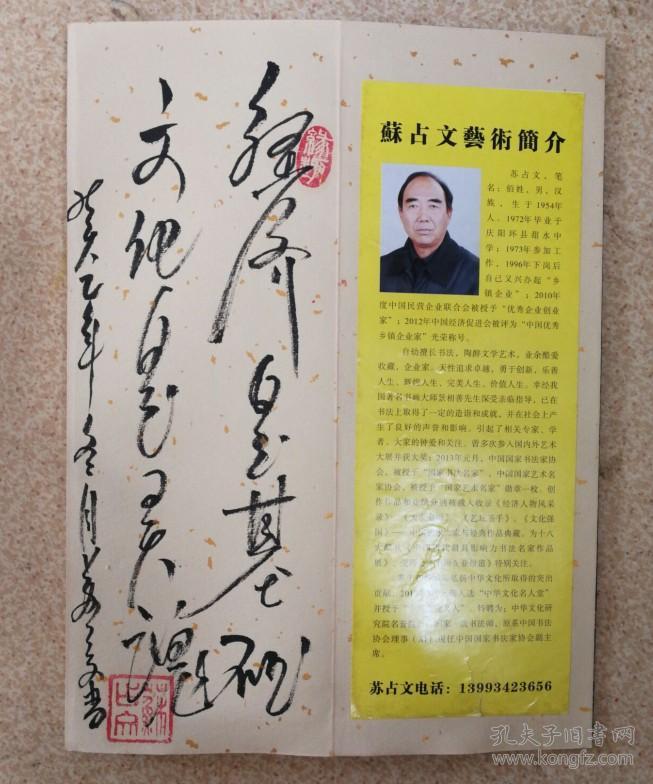 经济是基础
文化是灵魂
乙年冬月
蘇占文藝術簡介
苏占文，笔
名：佰姓，男，汉
族，生于1954年
人。1972年毕业于
庆阳环县甜水中
学；1973年参加工
作，1996年下岗后
自己又兴办起“乡
镇企业”；2010年
度中国民营企业联合会被授予“优秀企业创业
家”；2012年中国经济促进会被评为“中国优秀
乡镇企业家”光荣称号。
自幼擅长书法，陶醉文学艺术，业余酷爱
收藏，企业家。天性追求卓越，勇于创新，乐善
人生、辉煌人生、完美人生、价值人生。幸经我
国著名书画大师景相善先生深受亲临指导，已在
书法上取得了一定的造诣和成就，并在社会上产
生了良好的声誉和影响。引起了相关专家、学
者、大家的钟爱和关注。曾多次参入国内外艺术
大展并获大奖；2013年元月，中国国家书法家协
会，被授予“国家书法名家”，中国国家艺术名
家协会，被授予“国家艺术名家”勋章一枚。创
作作品和业绩分别被载入收录《经济人物风采
录》、《艺坛圣手》、《文化强
国》——家与经典作品典藏。为十八
最具影响力书法名家作品
特别关注。
弘扬中华文化所取得的突出
贡献，2013年入选“中华文化名人堂”
并授予人”。特聘为：中华文化研究
院名誉院一级书法师。原系中国书法
协会理事现任中国国家书法家协会副主
席。
苏占文电话：13993423656
孔夫子旧书网
www.kongfz.com